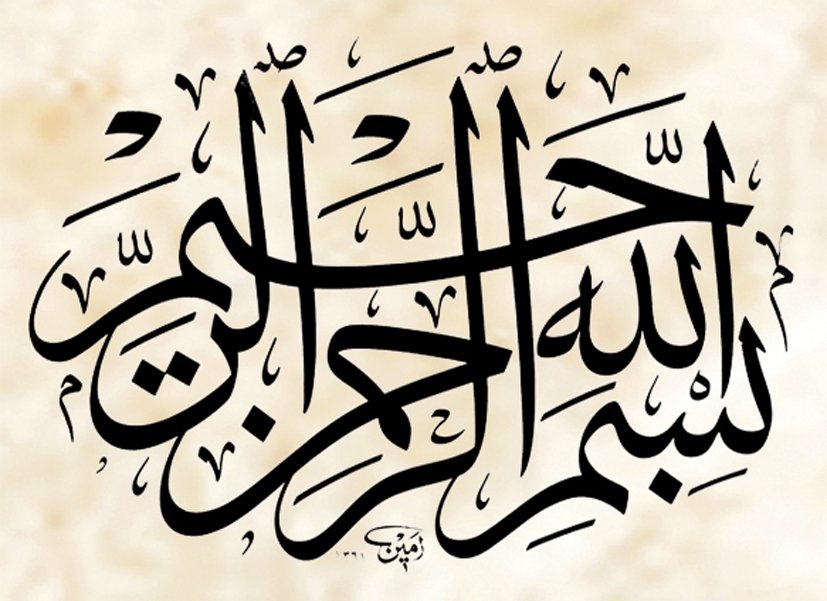 بِسْمِ اللهِ الرَّحْمٰنِ الرَّحِيْمِ
امين ١٣٦١